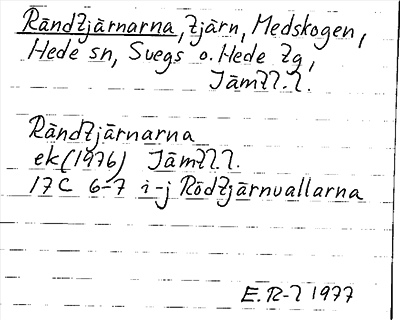 Råndtjärnarna, tjärn, Medskogen,
Hede sn, Svegs o. Hede tg,
Jämtl.l.
Råndtjärnarna
ek (1976) Jämtl.l.
17C 6-7 i-j Rödtjärnvallarna
E.R-l 1977